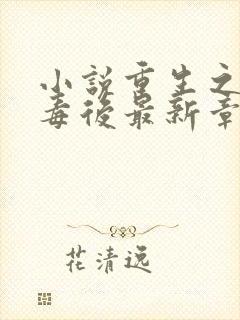 小説重生之
毒後最新章
花清远